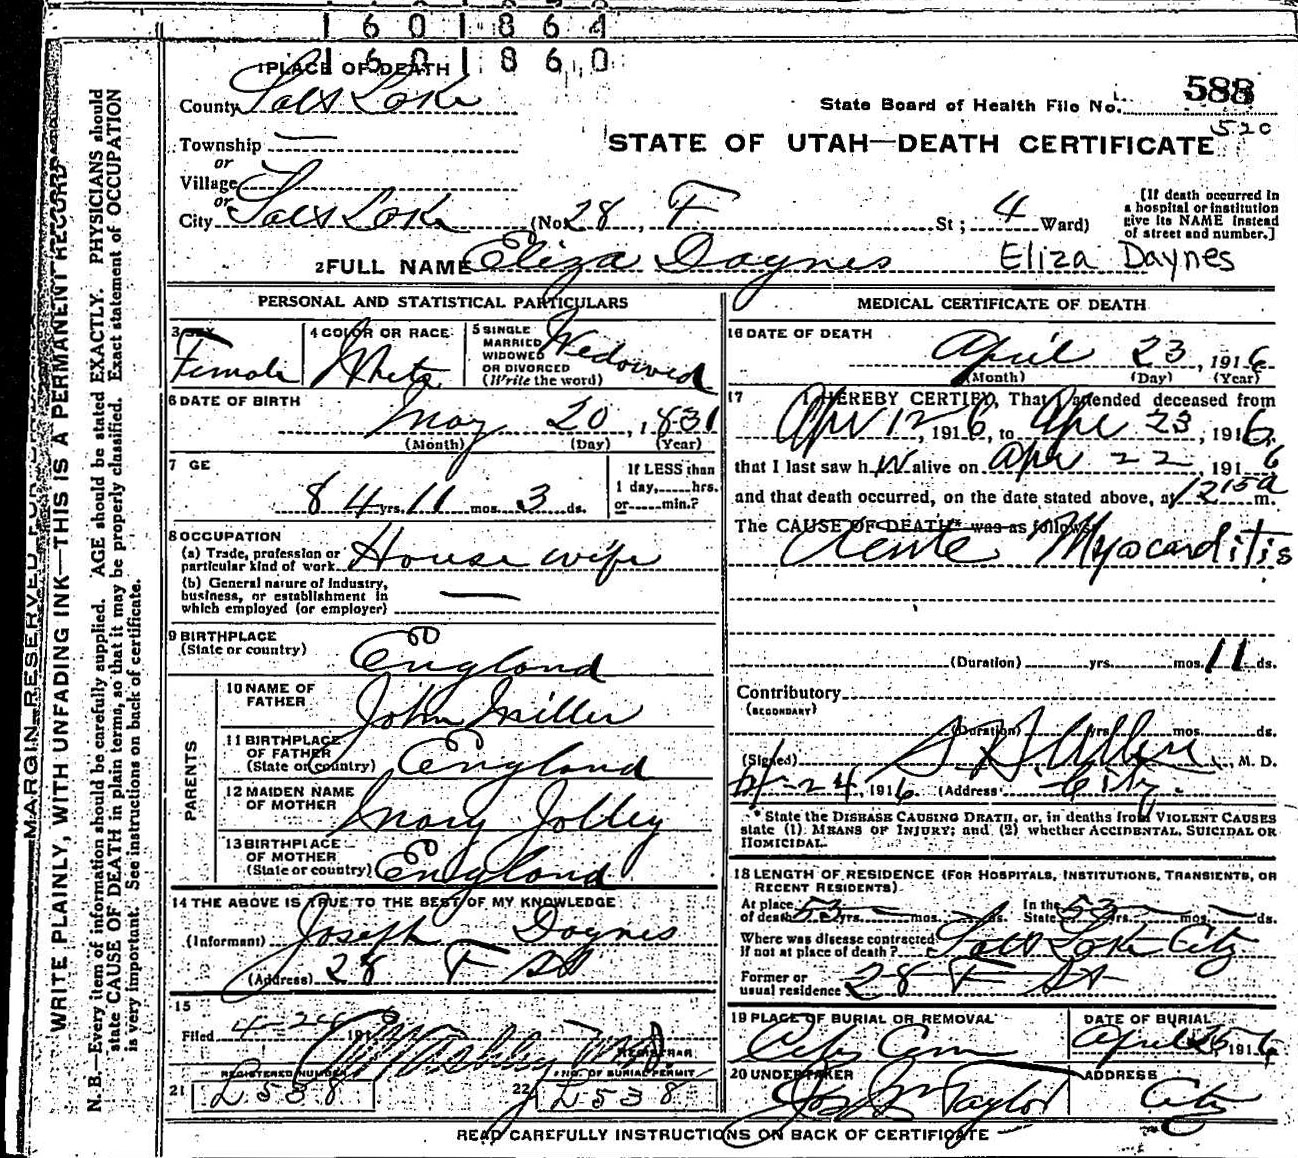 1 6 0 1 8 6 4
1 6 0 1 8 6 0
1 PLACE OF DEATH
County Salt Lake
State Board of Health File No. 588
520
STATE OF UTAH—DEATH CERTIFICATE
Township —
or
Village
or
City Salt Lake (No. 28, F St; 4 Ward)
[If death occurred in a hospital or institution give its NAME instead of street and number.]
2 FULL NAME Eliza Daynes Eliza Daynes
PERSONAL AND STATISTICAL PARTICULARS
3 SEX Female
4 COLOR OR RACE White
5 SINGLE MARRIED WIDOWED OR DIVORCED (Write the word) Widowed
6 DATE OF BIRTH May 20, 1831
(Month) (Day) (Year)
7 GE 84 yrs. 11 mos. 3 ds.
If LESS than 1 day, hrs. or min.?
8 OCCUPATION
(a) Trade, profession or particular kind of work House wife
(b) General nature of industry, business, or establishment in which employed (or employer) —
9 BIRTHPLACE (State or country) England
PARENTS
10 NAME OF FATHER John Miller
11 BIRTHPLACE OF FATHER (State or country) England
12 MAIDEN NAME OF MOTHER Mary Jolley
13 BIRTHPLACE OF MOTHER (State or country) England
14 THE ABOVE IS TRUE TO THE BEST OF MY KNOWLEDGE
(Informant) Joseph Daynes
(Address) 28 F St
15
Filed 4-24 191
REGISTRAR
REGISTERED NUMBER NO. OF BURIAL PERMIT
21 L538 22 L538
MEDICAL CERTIFICATE OF DEATH
16 DATE OF DEATH
April 23, 1916
(Month) (Day) (Year)
17 I HEREBY CERTIFY, That I attended deceased from
Apr 12, 1916, to Apr 23, 1916,
that I last saw h alive on Apr 22, 1916
and that death occurred, on the date stated above, at 1215a m.
The CAUSE OF DEATH* was as follows:
Acute Myocarditis
(Duration) yrs. mos. 11 ds.
Contributory
(SECONDARY)
(Duration) yrs. mos. ds.
(Signed) M. D.
4-24, 1916 (Address) City.
* State the DISEASE CAUSING DEATH, or, in deaths from VIOLENT CAUSES
state (1) MEANS OF INJURY; and (2) whether ACCIDENTAL, SUICIDAL OR
HOMICIDAL.
18 LENGTH OF RESIDENCE (FOR HOSPITALS, INSTITUTIONS, TRANSIENTS, OR RECENT RESIDENTS)
At place of death 53 yrs. mos. ds. In the State 53 yrs. mos. ds.
Where was disease contracted If not at place of death? Salt Lake City
Former or usual residence 28 F St
19 PLACE OF BURIAL OR REMOVAL City Cem
DATE OF BURIAL April 25, 1916
20 UNDERTAKER Jos Wm Taylor
ADDRESS City
READ CAREFULLY INSTRUCTIONS ON BACK OF CERTIFICATE
MARGIN RESERVED
WRITE PLAINLY, WITH UNFADING INK—THIS IS A PERMANENT RECORD
N. B.—Every item of information should be carefully supplied. AGE should be stated EXACTLY. PHYSICIANS should
state CAUSE OF DEATH in plain terms, so that it may be properly classified. Exact statement of OCCUPATION
is very important. See instructions on back of certificate.